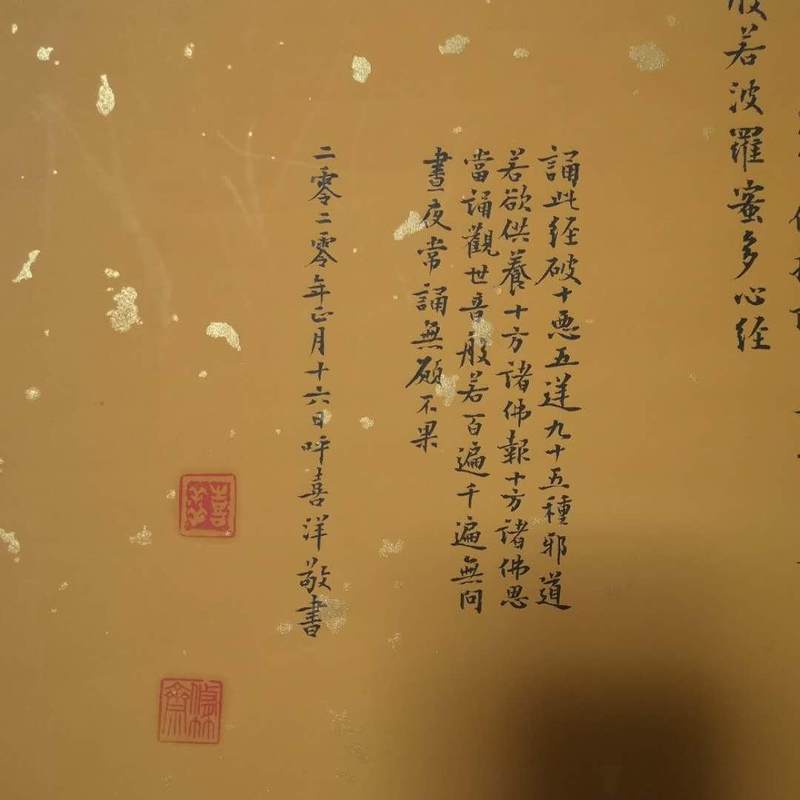 般若波羅蜜多心經
誦此經破十惡五逆九十五種邪道
若欲供養十方諸佛報十方諸佛恩
當誦觀世音般若百遍千遍無問
晝夜常誦無願不果
二零二零年正月十六日呼喜洋敬書